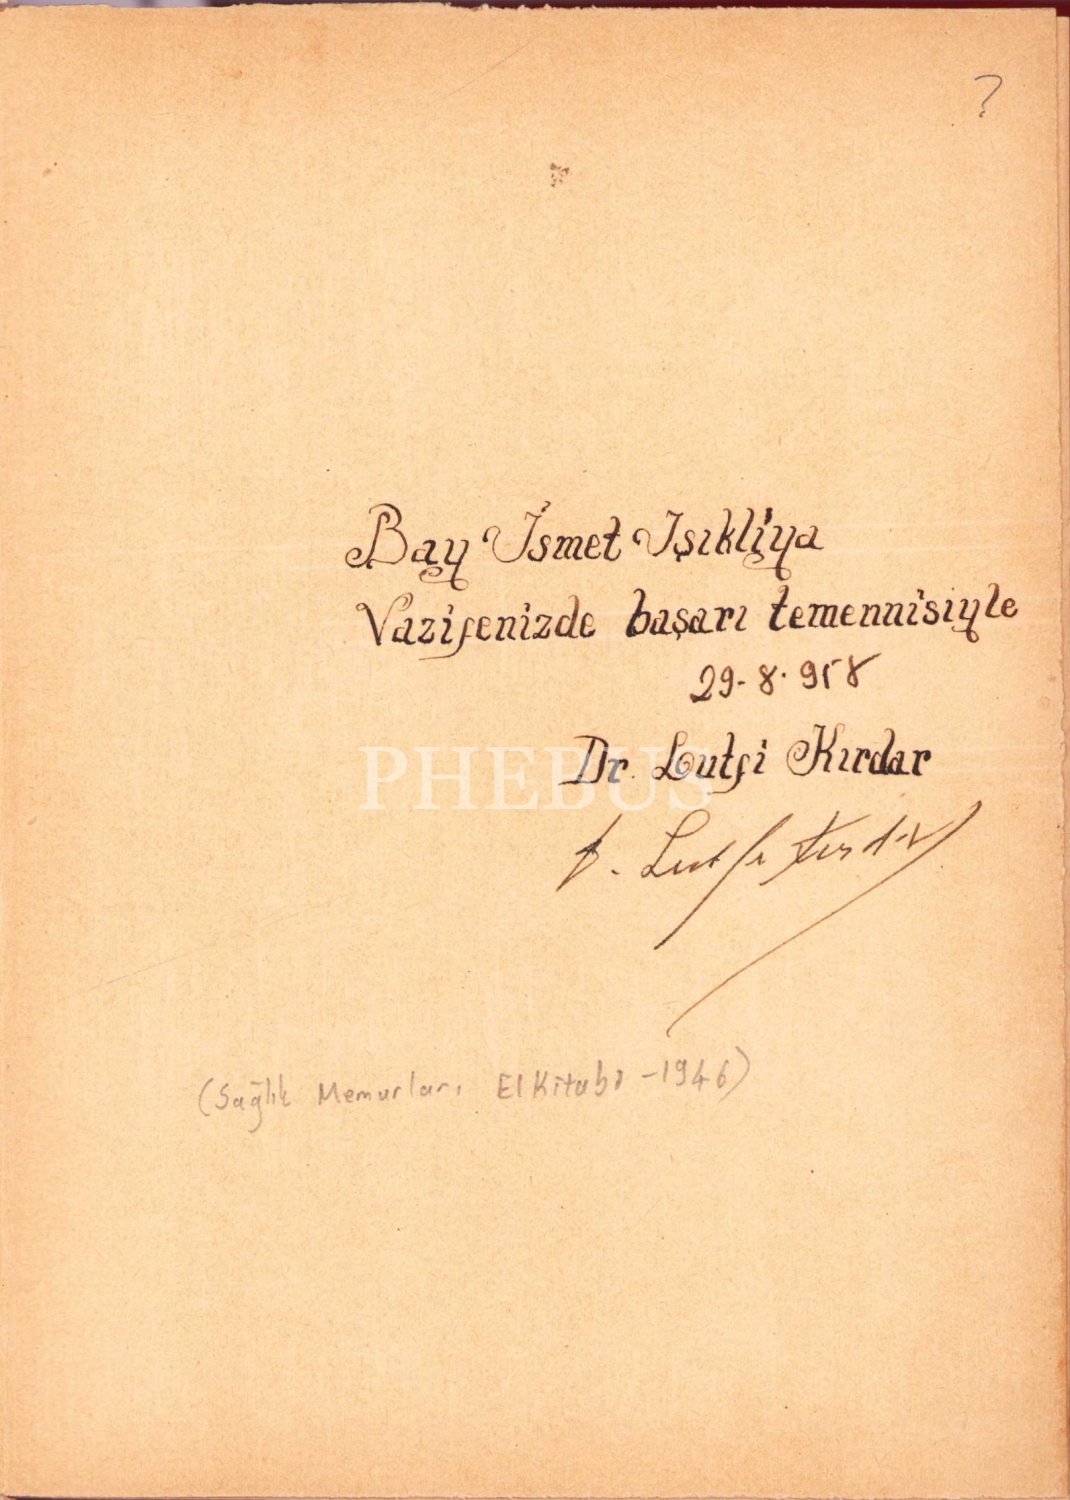 ?
Bay İsmet Işıkliya
Vazifenizde başarı temennisiyle
29.8.958
Dr. Lutfi Kırdar
PHEBUS
Dr. Lutfi Kırdar
(Sağlık Memurları El Kitabı - 1946)